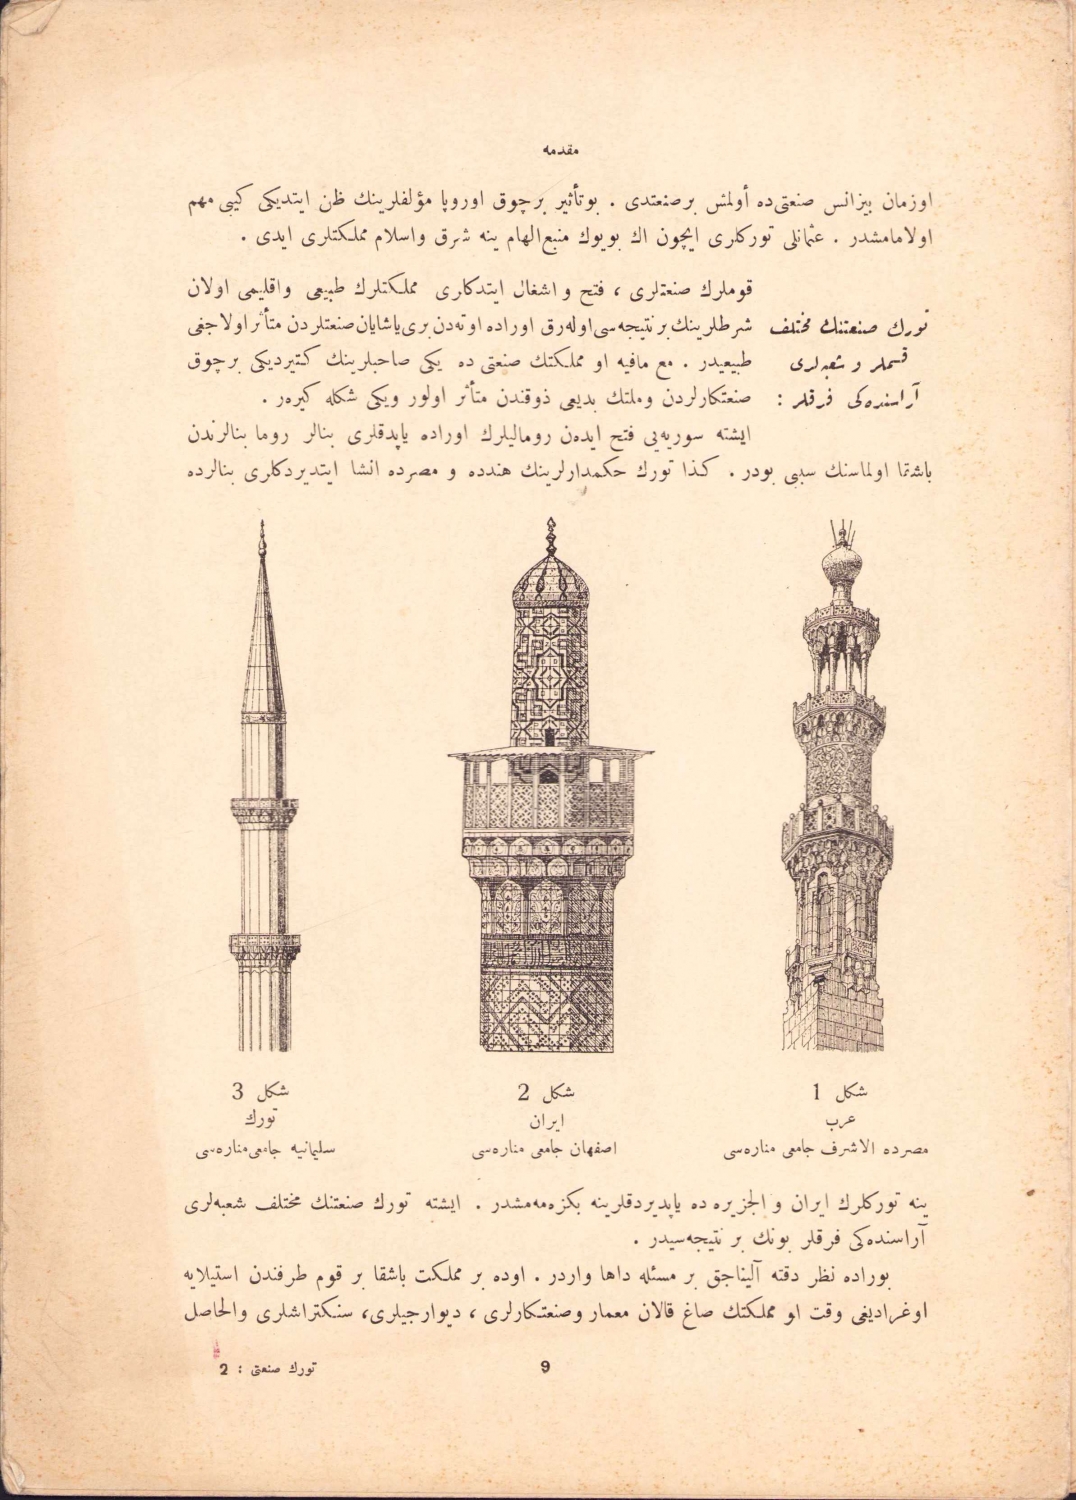 مقدمه
اوزمان بیزانس صنعتی‌ده أولمش برصنعتدی . بوتأثیر برچوق اوروپا مؤلفلرینك ظن ایتدیکی کیبی مهم
اولامامشدر . عثمانلی تورکلری ایچون اك بویوك منبع الهام ینه شرق واسلام مملکتلری ایدی .
قوملرك صنعتلری ، فتح و اشغال ایتدکاری مملکتلرك طبیعی واقلیمی اولان
تورك صنعتنك مختلف
شرطلرینك بر نتیجه‌سی اوله‌رق اوراده اوته‌دن بری یاشایان صنعتلردن متأثر اولاجغی
قسملر و شعبه‌لری
طبیعیدر . مع مافیه او مملکتك صنعتی ده یکی صاحبلرینك کتیردیکی برچوق
آراسنده‌کی فرقلر :
صنعتکارلردن وملتك بدیعی ذوقندن متأثر اولور ویکی شکله کیرەر .
ایشته سوریه‌یی فتح ایده‌ن رومالیلرك اوراده یاپدقلری بنالر روما بنالرندن
باشقا اولماسنك سببی بودر . کذا تورك حکمدارلرینك هندده و مصرده انشا ایتدیردکلری بنالرده
شکل 1
عرب
مصرده الاشرف جامعی مناره‌سی
شکل 2
ایران
اصفهان جامعی مناره‌سی
شکل 3
تورك
سلیمانیه جامعی مناره‌سی
ینه تورکلرك ایران و الجزیره ده یاپدیردقلرینه بکزه‌مه‌مشدر . ایشته تورك صنعتنك مختلف شعبه‌لری
آراسنده‌کی فرقلر بونك بر نتیجه‌سیدر .
بوراده نظر دقته آلیناجق بر مسئله داها واردر . اوده بر مملکت باشقا بر قوم طرفندن استیلایه
اوغرادیغی وقت او مملکتك صاغ قالان معمار وصنعتکارلری ، دیوارجیلری، سنکتراشلری والحاصل
9
تورك صنعتی : 2